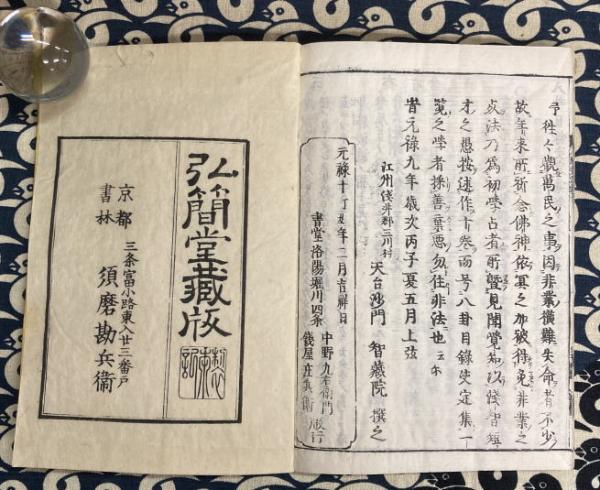 予往々觀萬民之事因非業横難失命者不少
故年来所祈念佛神依冥之加被得免非業之
法乃爲初学占者所曁見聞覚知以浅智短
才之愚按述作十巻而号八卦目録使定集一
覧之学者択善棄悪勿往非法也云尓
旹元禄九年歳次丙子夏五月上弦
江州浅井郡三川村
天台沙門 智藏院 撰之
元禄十丁丑年二月吉祥日
書堂洛陽堀川四条
中野九右衛門
銭屋庄兵衛
行
弘簡堂藏版
京都
書林
三条富小路東入廿三番戸
須磨勘兵衛